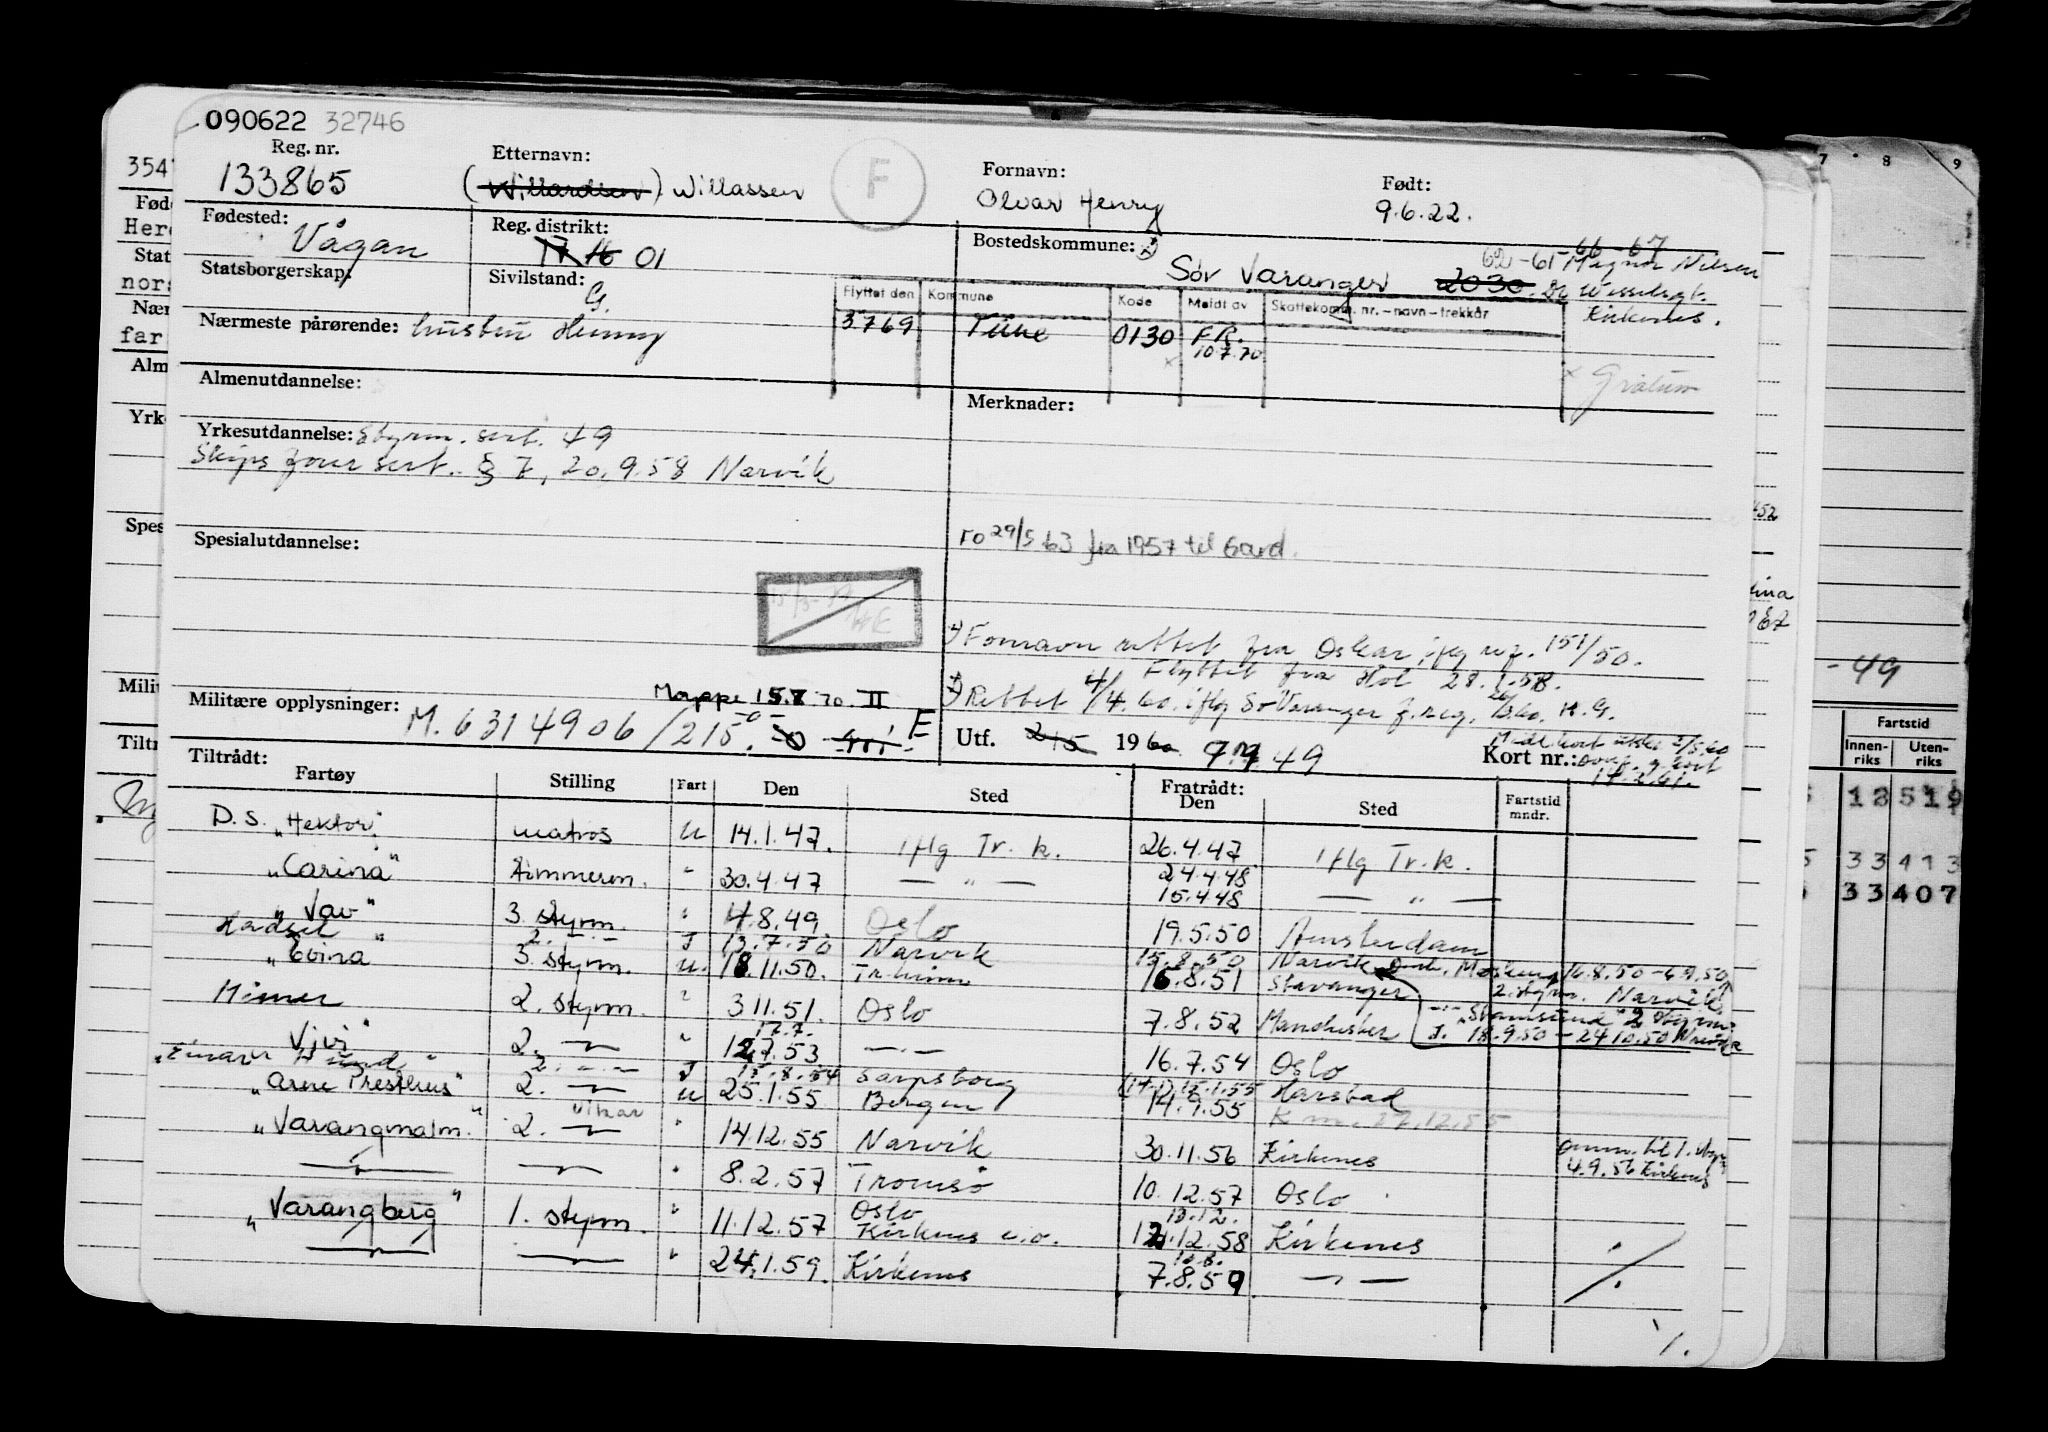 090622 32746
Reg. nr.
133865
Etternavn:
(Willardsen) Willassen
F
Fornavn:
Olvar Henry
Født:
9.6.22.
Fødested:
Vågan
Reg. distrikt:
01
Bostedskommune:
Sør Varanger 2030
62-65 66-67
Magnus Nilsen
Kirkenes.
Statsborgerskap:
Sivilstand:
G.
Flyttet den Kommune Kode Meldt av Skattekomm. nr.-navn-trekkår
3769 0130 F.R.
10.7.70
Nærmeste pårørende: hustru Henny
Almenutdannelse:
Merknader:
Yrkesutdannelse: Styrm. sert. 49
Skipsførersert. § 7, 20.9.58 Narvik
Spesialutdannelse:
Fo 29/5 63 fra 1957 til Gard.
Fornavn rettet fra Oskar, iflg. 151/50.
Flyttet fra Hol 28.1.58.
Rettet 4/4.60. iflg Sø Varanger f.reg. H.G.
Militære opplysninger:
Mappe 15.7.70. II
M. 6314906/215. E
Utf. 2/5 1960 7.9.49
Kort nr.:
14.2.61.
Tiltrådt:
Fartøy Stilling Fart Den Sted Fratrådt: Den Sted Fartstid mndr.
D.S. "Hektor" matros u 14.1.47. iflg Tr. k. 26.4.47 iflg Tr. k.
"Carina" tømmerm. " 30.4.47 — " — 24.4.48 — " —
15.4.48
"Vav" 3. styrm. " 4.8.49 Oslo 19.5.50 Amsterdam
Hadsel 2. — " — I 13.7.50 Narvik 15.8.50 Narvik 16.8.50-
"Evina" 3. styrm. u. 18.11.50. Tr.heim 16.8.51 Stavanger
2. styrm. Narvik
Mimer 2. styrm. " 3.11.51. Oslo 7.8.52 Manchester
"Stamsund" 2. styrm.
I. 18.9.50 – 24.10.50
17.7.
"Vivi" 2. — " 12.7.53 — " — 16.7.54 Oslo
2. — " — I 15.8.54 Sarpsborg 15.1.55 Harstad
"Arne Presthus" 2. — u 25.1.55 Bergen 14.9.55 K m. 27.12.55
"Varangmalm." 2. — " 14.12.55 Narvik 30.11.56 Kirkenes
4.9.56 Kirkenes
— " — — " 8.2.57 Tromsø 10.12.57 Oslo
"Varangberg" 1. styrm. " 11.12.57 Oslo
Kirkenes e.o. 12.12.58 Kirkenes
13.12.
— " — — " 24.1.59. Kirkenes 7.8.59 — " —
./.
354
Fød
Her
Stat
nor
Nær
far
Alm
Yrk
Spes
Milit
Tiltr
7 8 9
- 49
Fartstid
Innen-
riks
Uten-
riks
12 519
33 413
33 407